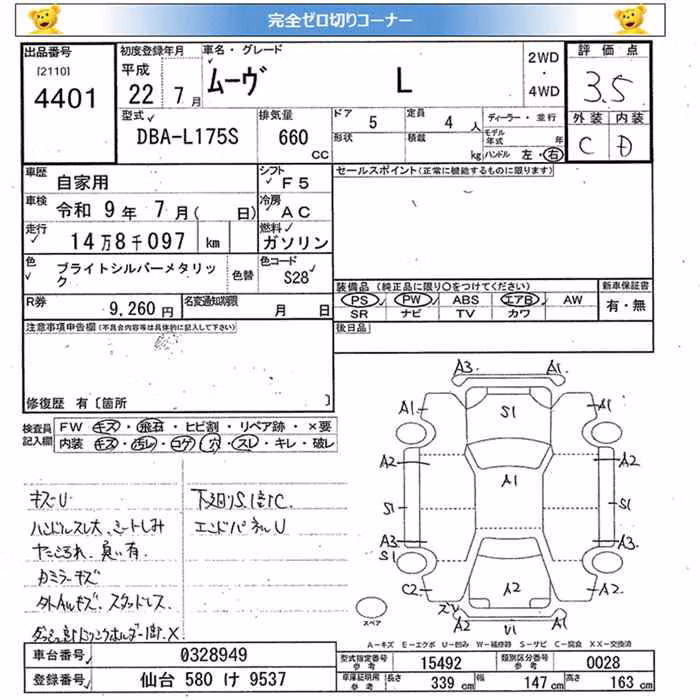 完全ゼロ切りコーナー
出品番号
[2110]
4401
初度登録年月
平成
22年 7月
車名・グレード
ムーヴ L
2WD
・
4WD
評価点
3.5
外装 内装
C D
型式
DBA-L175S
排気量
660
CC
ドア 5
定員 4人
形状
積載 kg
ディーラー・並行
モデル年式 年
ハンドル 左・右
車歴
自家用
シフト
F5
セールスポイント(正常に機能するものに限ります)
車検
令和 9年 7月( 日)
冷房
AC
走行
14万8千097 km
燃料
ガソリン
色
ブライトシルバーメタリック
色替
色コード
S28
装備品(純正品に限り○をつけてください)
新車保証書
PS PW ABS エアB AW
有・無
SR ナビ TV カワ
R券
9,260円
名変通知期限
月 日
後日品
注意事項申告欄(不具合内容等は具体的に記入して下さい)
修復歴 有〔箇所 〕
検査員
記入欄
FW キズ・飛石・ヒビ割・リペア跡・×要
内装 キズ・汚レ・コゲ・穴・スレ・キレ・破レ
キズU
下廻りS.錆C
ハンドルスレ大、シートしみ
エンドパネルU
カミラーキズ
外AWキズ、スタッドレス
A3 A1
A1 S1 A1
A2 A1 A2
S1 S1
A3 A3
S1
C2 A2 A2
A2 U1 A1
スペア
A-キズ E-エクボ U-凹み W-補修跡 S-サビ C-腐食 XX-交換済
車台番号
0328949
型式指定番号
参考
15492
類別区分番号
参考
0028
登録番号
仙台 580 け 9537
車庫証明用
参考
長さ 339 cm
幅 147 cm
高さ 163 cm